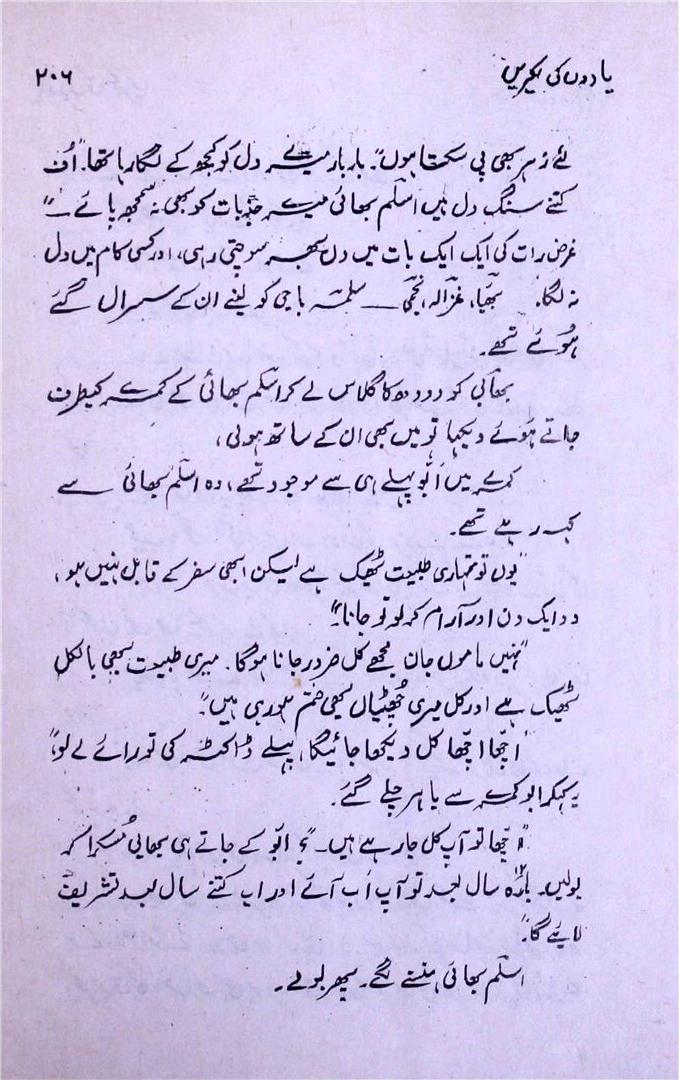 یادوں کی لکیریں ۲۰۶
لئے زہر بھی پی سکتا ہوں"۔ بار بار میرے دل کو کچوکے لگا رہا تھا۔ "اُف
کتنے سنگ دل ہیں اسلم بھائی میرے جذبات کو بھی نہ سمجھ پائے ــــ"
غرض رات کی ایک ایک بات میں دن بھر سوچتی رہی، اور کسی کام میں دل
نہ لگا۔ بھیا، غزالہ، نجمی ــــ سلمہ باجی کو لینے ان کے سسرال گئے
ہوئے تھے۔
بھابی کو دودھ کا گلاس لے کر اسلم بھائی کے کمرے کیطرف
جاتے ہوئے دیکھا تو میں بھی ان کے ساتھ ہولی،
کمرے میں ابّو پہلے ہی سے موجود تھے، وہ اسلم بھائی سے
کہہ رہے تھے۔
"یوں تو تمہاری طبیعت ٹھیک ہے لیکن ابھی سفر کے قابل نہیں ہو،
دو ایک دن اور آرام کر لو تو جانا۔"
"نہیں ماموں جان مجھے کل ضرور جانا ہوگا۔ میری طبیعت بھی بالکل
ٹھیک ہے اور کل میری چھٹیاں بھی ختم ہو رہی ہیں"۔
"اچھا اچھا کل دیکھا جائیگا، پہلے ڈاکٹر کی تو رائے لے لو"،
یہ کہکر ابو کمرے سے باہر چلے گئے۔
"اچھا تو آپ کل جا رہے ہیں۔"؟ ابّو کے جاتے ہی بھابی مُسکرا کر
بولیں۔ بارہ سال بعد تو آپ اَب آئے اور اب کتنے سال بعد تشریف
لائیے گا"۔
اسلم بھائی ہنسنے لگے۔ پھر بولے۔